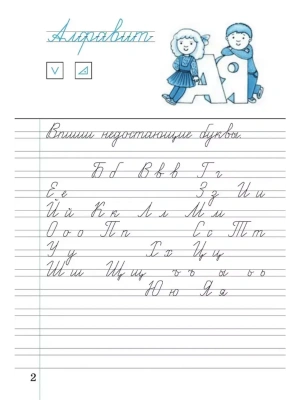 Алфавит
АЯ
Впиши недостающие буквы.
Б б В в Г г
Е е З з И и
Й й К к Л л М м
О о П п С с Т т
У у Х х Ц ц
Ш ш Щ щ ъ ъ ы ь ь
Ю ю Я я
2